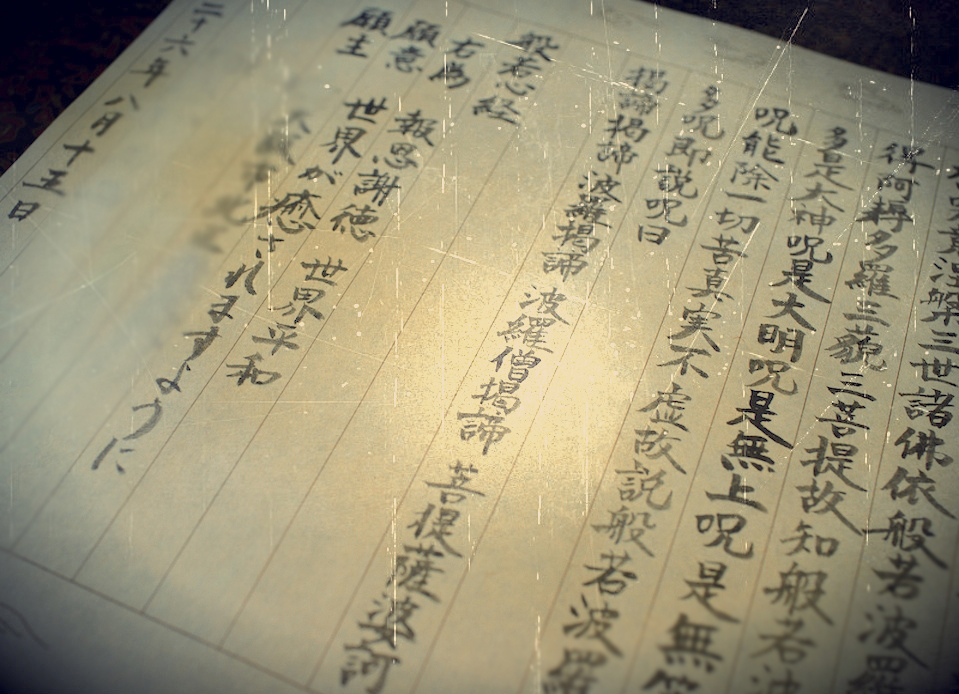 竟涅槃三世諸佛依般若波羅
得阿耨多羅三藐三菩提故知般若波
多是大神呪是大明呪是無上呪是無等
呪能除一切苦真実不虚故説般若波羅
多呪即説呪曰
揭諦揭諦 波羅揭諦 波羅僧揭諦 菩提薩婆訶
般若心経
右為 報恩謝徳 世界平和
願意 世界が癒されますように
願主
二十六年八月十五日